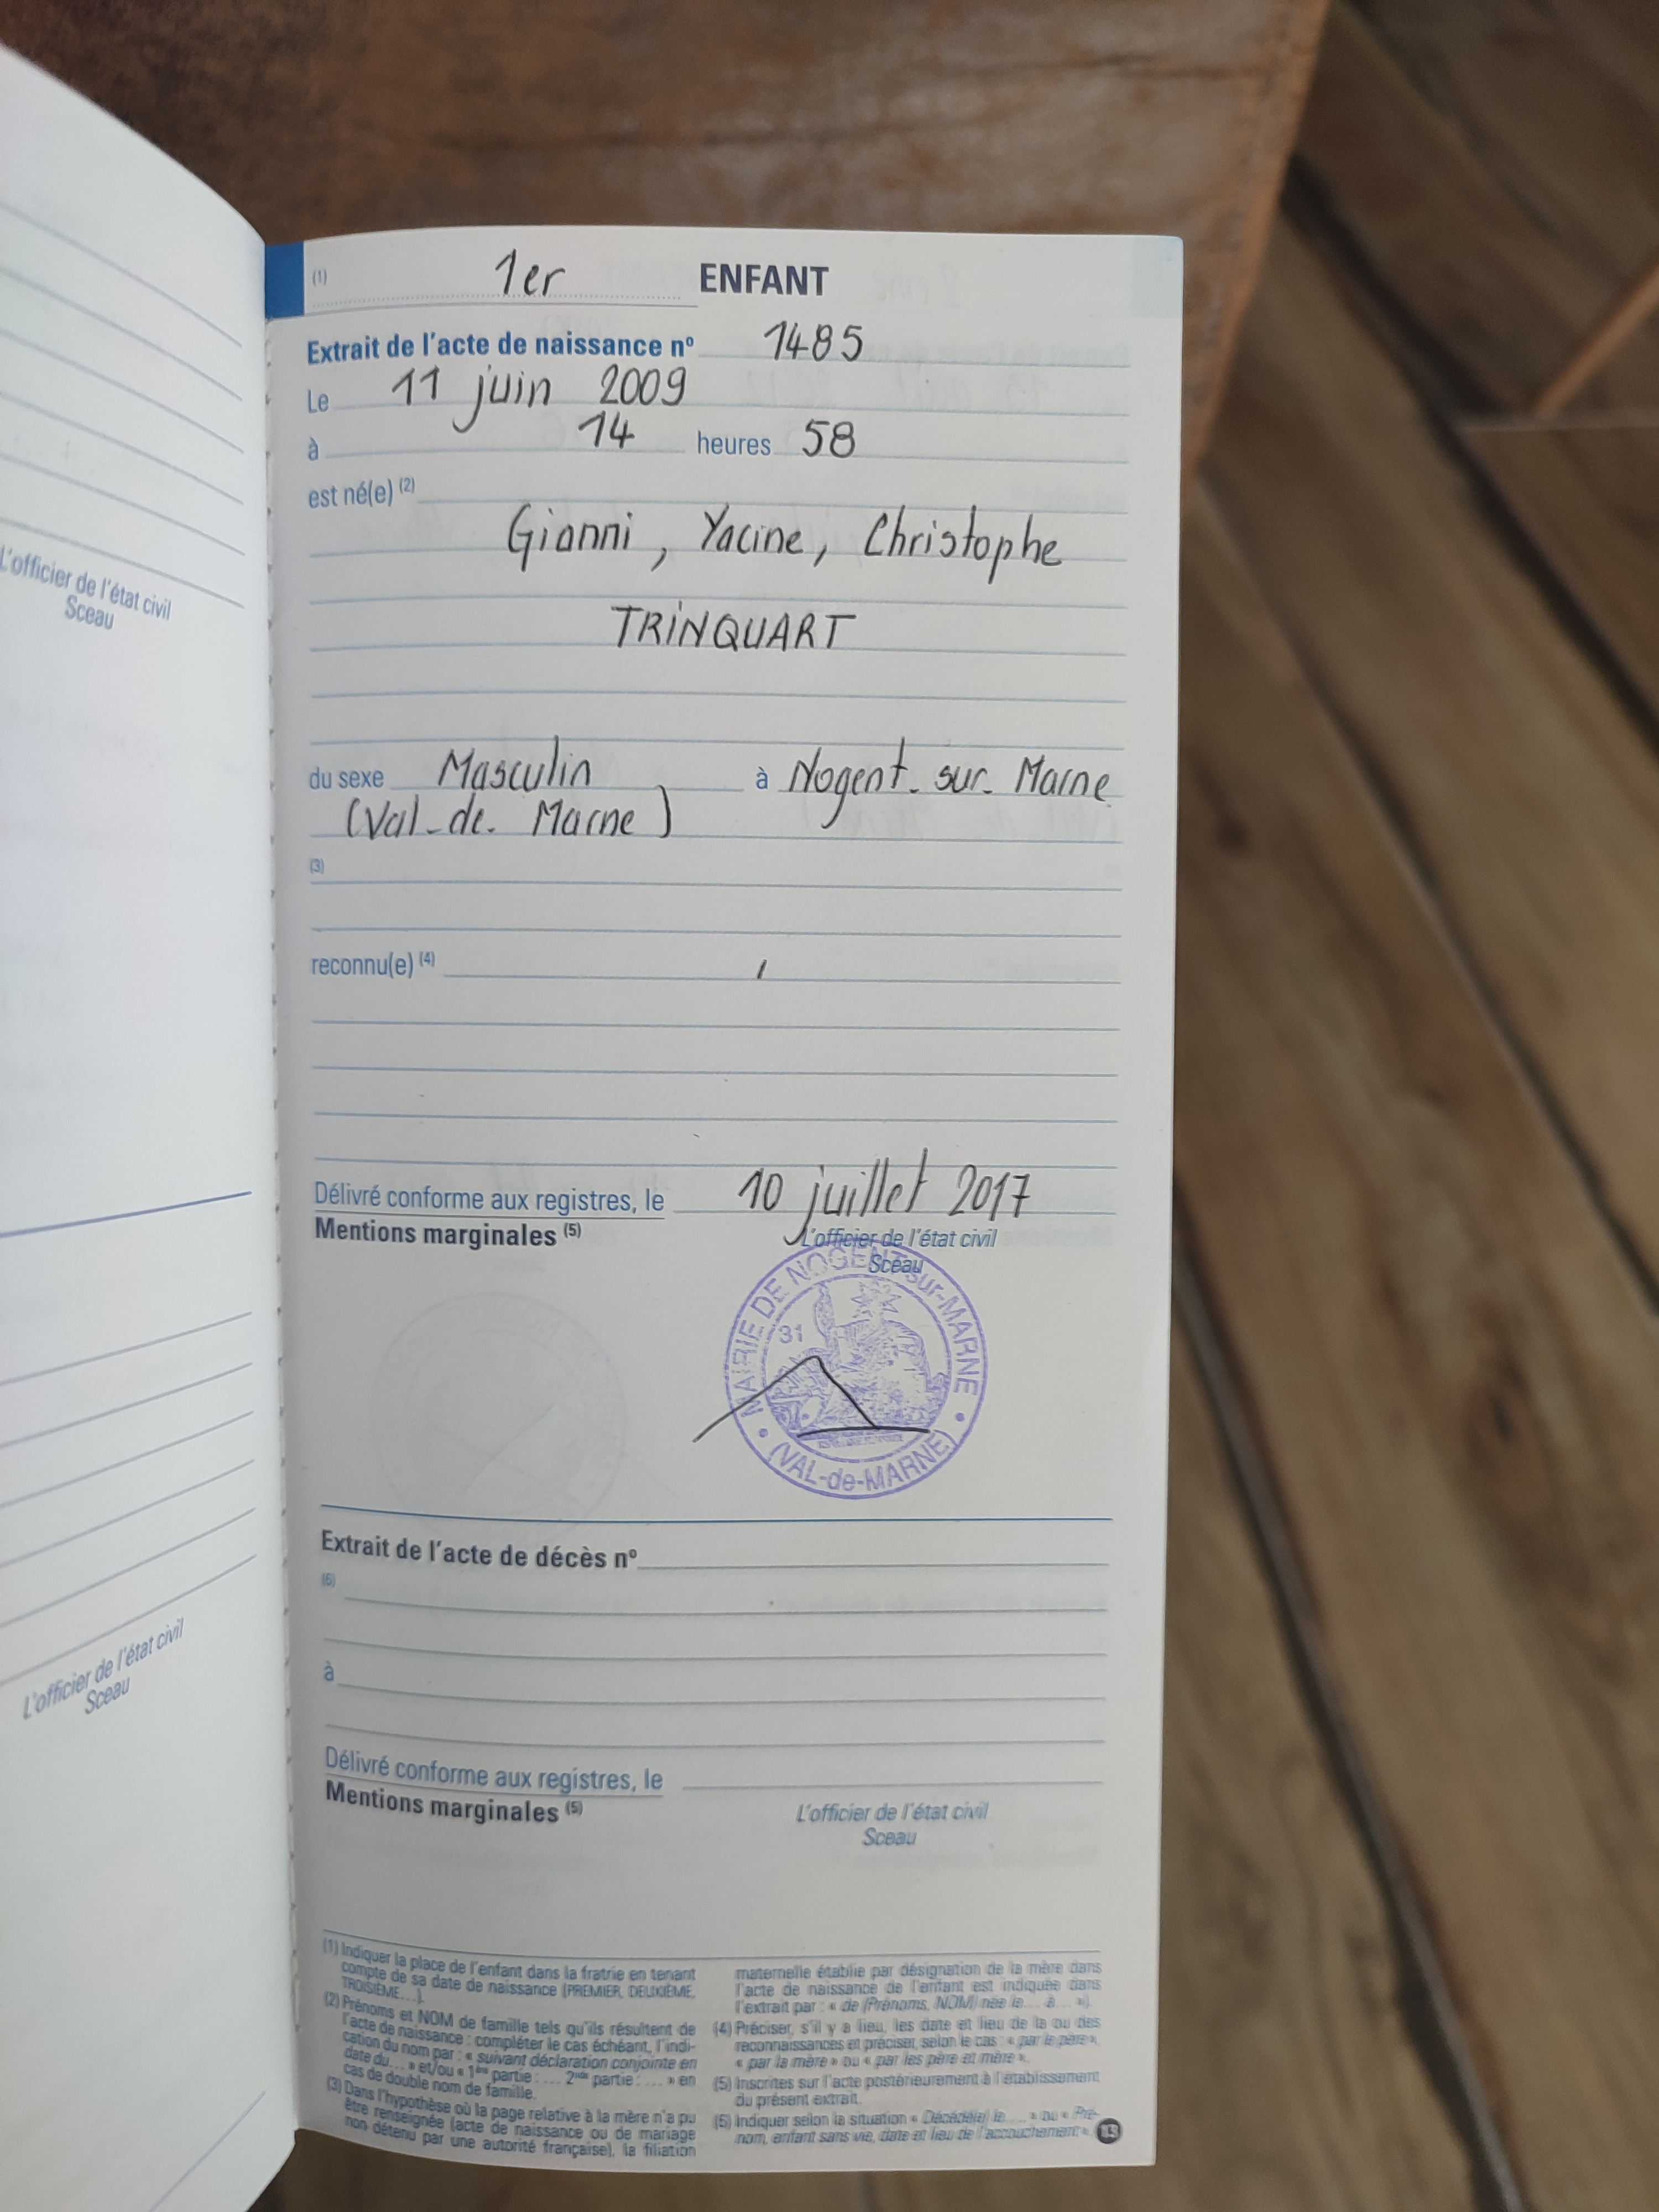 L'officier de l'état civil
Sceau
L'officier de l'état civil
Sceau
(1) 1er ENFANT
Extrait de l'acte de naissance nº 1485
Le 11 juin 2009
à 14 heures 58
est né(e) (2)
Gianni, Yacine, Christophe
TRINQUART
du sexe Masculin à Nogent-sur-Marne
(Val-de-Marne)
(3)
reconnu(e) (4)
Délivré conforme aux registres, le 10 juillet 2017
Mentions marginales (5)
L'officier de l'état civil
Sceau
MAIRIE DE NOGENT-sur-MARNE
31
(VAL-de-MARNE)
Extrait de l'acte de décès nº
(6)
à
Délivré conforme aux registres, le
Mentions marginales (5)
L'officier de l'état civil
Sceau
(1) Indiquer la place de l'enfant dans la fratrie en tenant
compte de sa date de naissance (PREMIER, DEUXIÈME,
TROISIÈME...).
(2) Prénoms et NOM de famille tels qu'ils résultent de
l'acte de naissance : compléter le cas échéant, l'indi-
cation du nom par : « suivant déclaration conjointe en
date du... » et/ou « 1ère partie : ... 2nde partie : ... » en
cas de double nom de famille.
(3) Dans l'hypothèse où la page relative à la mère n'a pu
être renseignée (acte de naissance ou de mariage
non détenu par une autorité française), la filiation
maternelle établie par désignation de la mère dans
l'acte de naissance de l'enfant est indiquée dans
l'extrait par : « de (Prénoms, NOM) née le... à... »).
(4) Préciser, s'il y a lieu, les date et lieu de la ou des
reconnaissances et préciser, selon le cas : « par le père »,
« par la mère » ou « par les père et mère ».
(5) Inscrites sur l'acte postérieurement à l'établissement
du présent extrait.
(6) Indiquer selon la situation « Décédé(e) le... » ou « Pré-
nom, enfant sans vie, date et lieu de l'accouchement ».